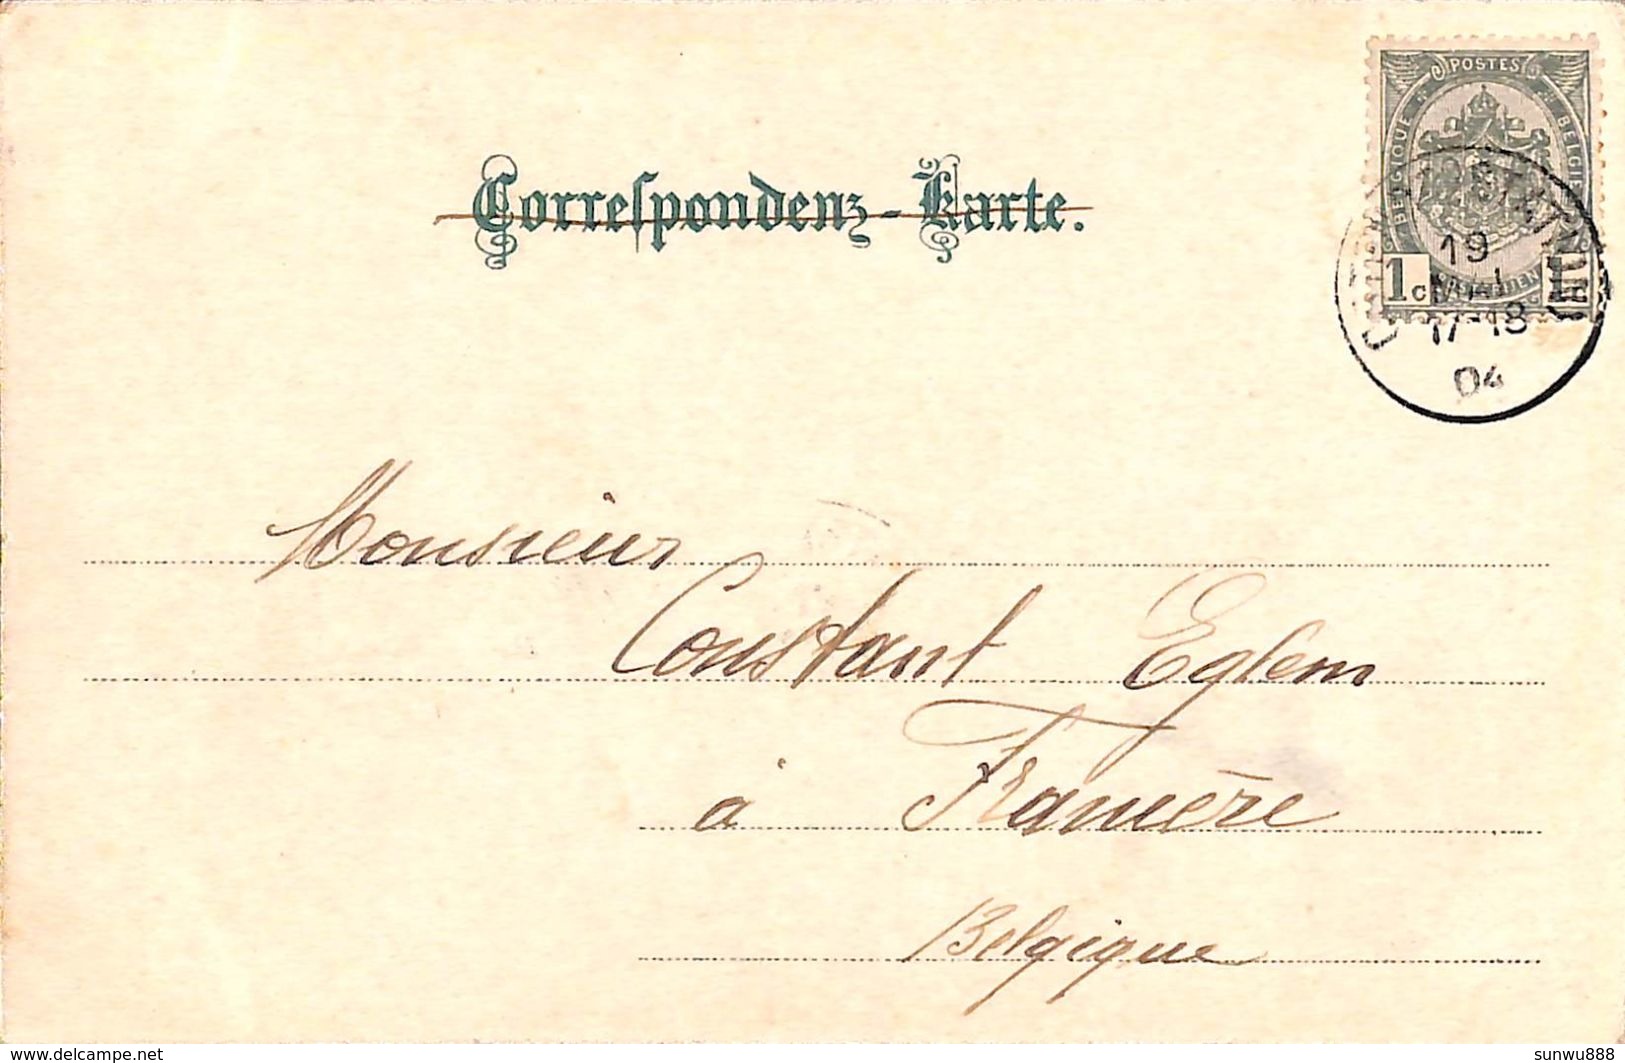 POSTES
BELGIQUE
BELGIE
Correspondenz-Karte.
19
MAI
1c
17-18
04
Monsieur
Constant Eglem
à Franière
Belgique
www.delcampe.net
sunwu888